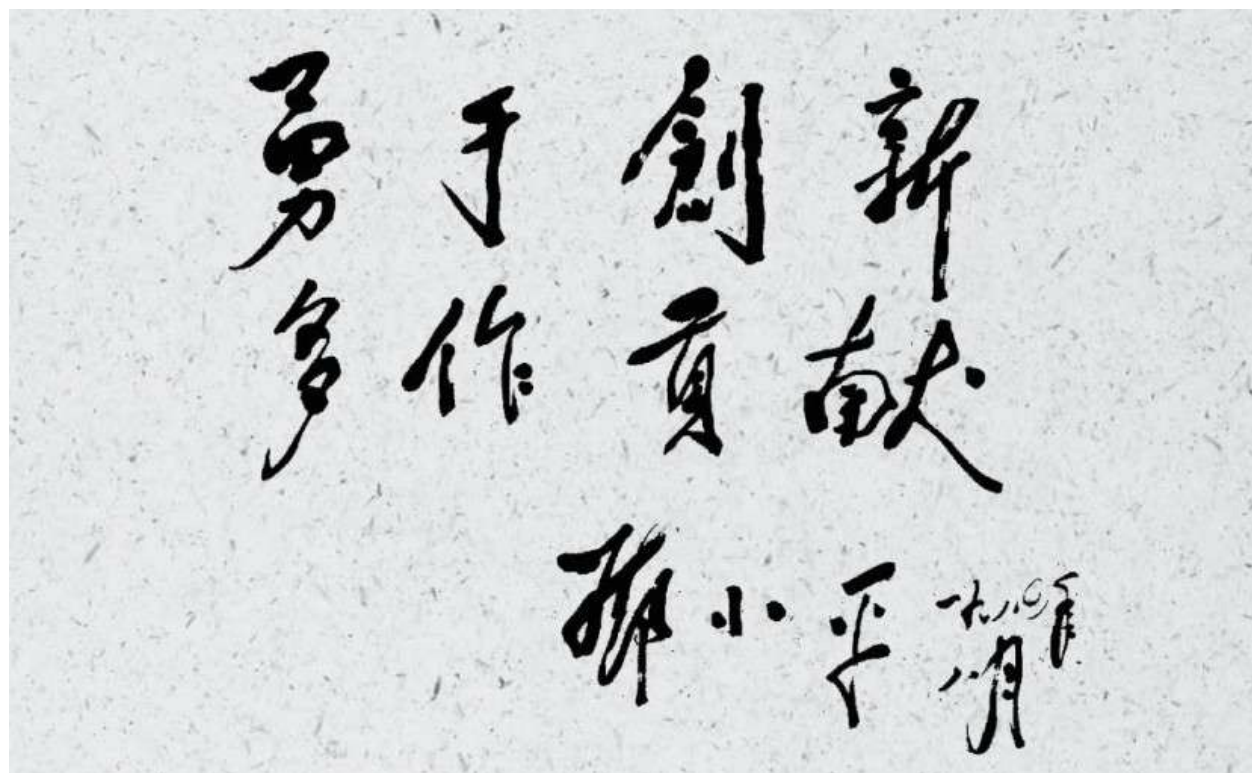 勇于創新
多作貢献
鄧小平 一九八〇年
八月